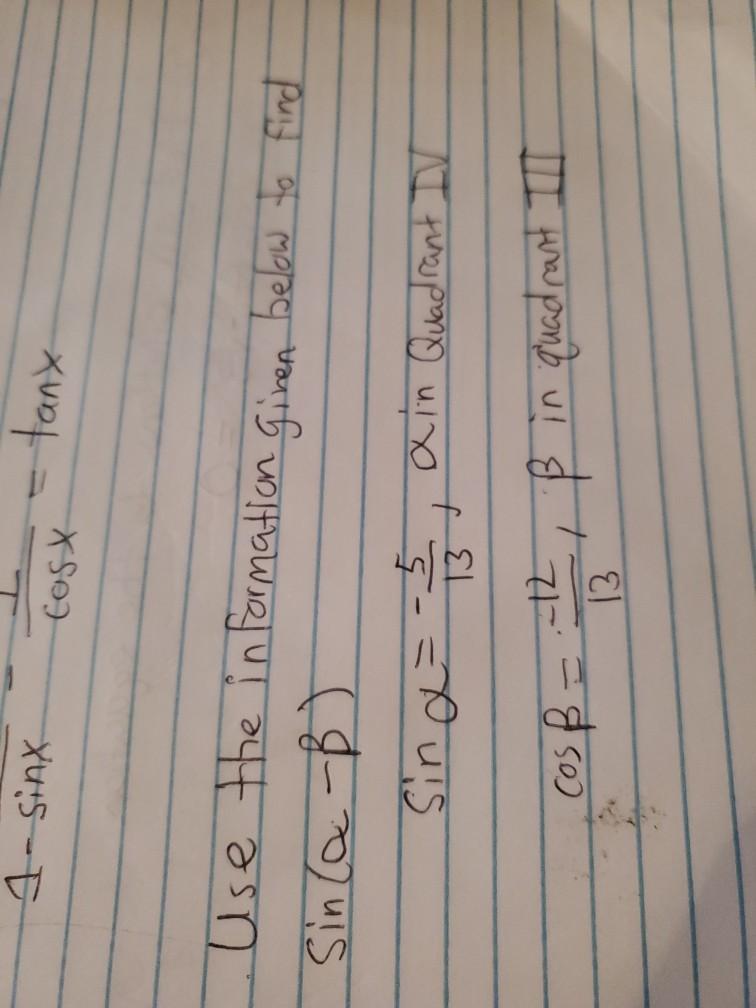 1 - sinx - 1/cosx = tanx
Use the information given below to find
Sin(α - β)
Sin α = - 5/13, α in Quadrant IV
cos β = -12/13, β in quadrant III